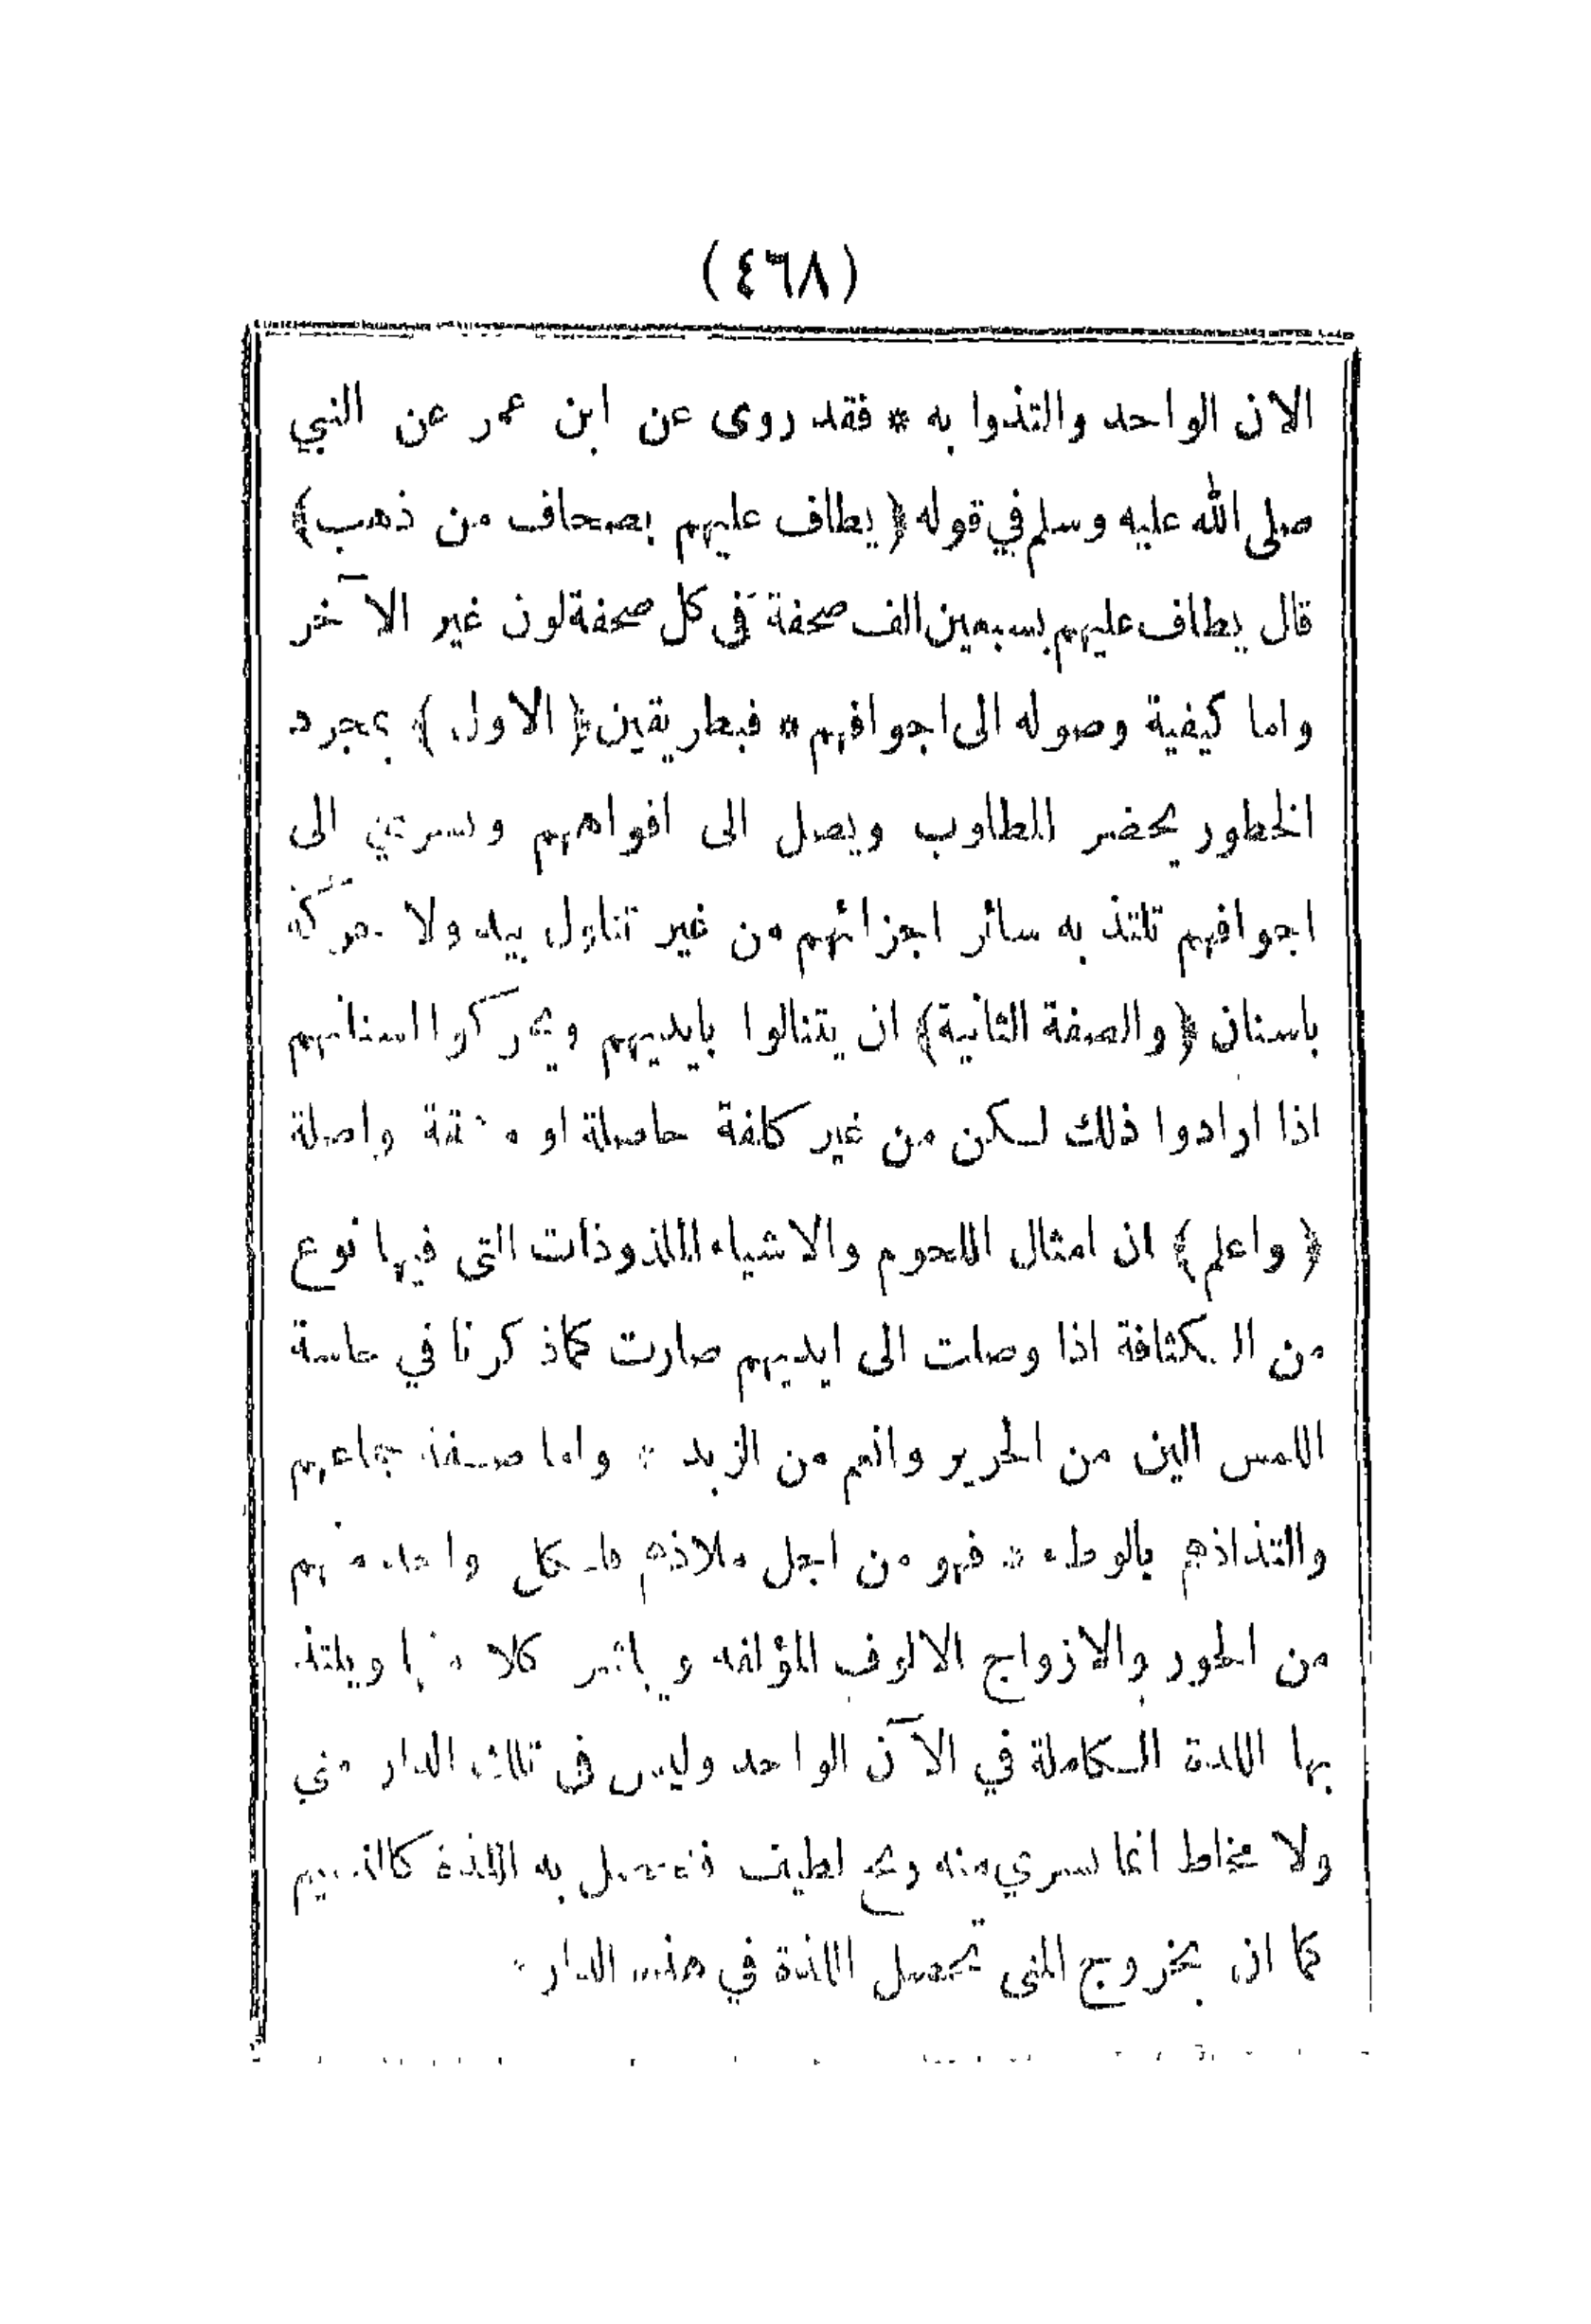 (٤٦٨)
الان الواحد والتذوا به * فقد روى عن ابن عمر عن النبي
صلى الله عليه وسلم في قوله ﴿ يطاف عليهم بصحاف من ذهب ﴾
قال يطاف عليهم بسبعين الف صحفة في كل صحفة لون غير الآخر
واما كيفية وصوله الى اجوافهم * فبطريقين ﴿ الاول ﴾ بمجرد
الخطور يحضر المطلوب ويصل الى افواههم ويسري الى
اجوافهم تلتذ به سائر اجزائهم من غير تناول بيد ولا حركة
باسنان ﴿ والصفة الثانية ﴾ ان يتنالوا بايديهم ويحركوا اسنانهم
اذا ارادوا ذلك لكن من غير كلفة حاصلة او مشقة واصلة
﴿ واعلم ﴾ ان امثال اللحوم والاشياء الملذوذات التى فيها نوع
من الكثافة اذا وصلت الى ايديهم صارت كماذكرنا في حاسة
اللمس الين من الحرير وانعم من الزبد * واما صفة جماعهم
والتذاذهم بالوطء * فهو من اجل ملاذهم فلكل واحد منهم
من الحور والازواج الالوف المؤلفه ويباشر كلا منها ويلتذ
بها اللذة الكاملة في الآن الواحد وليس فى تلك الدار مني
ولا مخاط انما يسري منه ريح لطيف فتحصل به اللذة كالنسيم
كما ان بخروج المنى تحصل اللذة في هذه الدار *